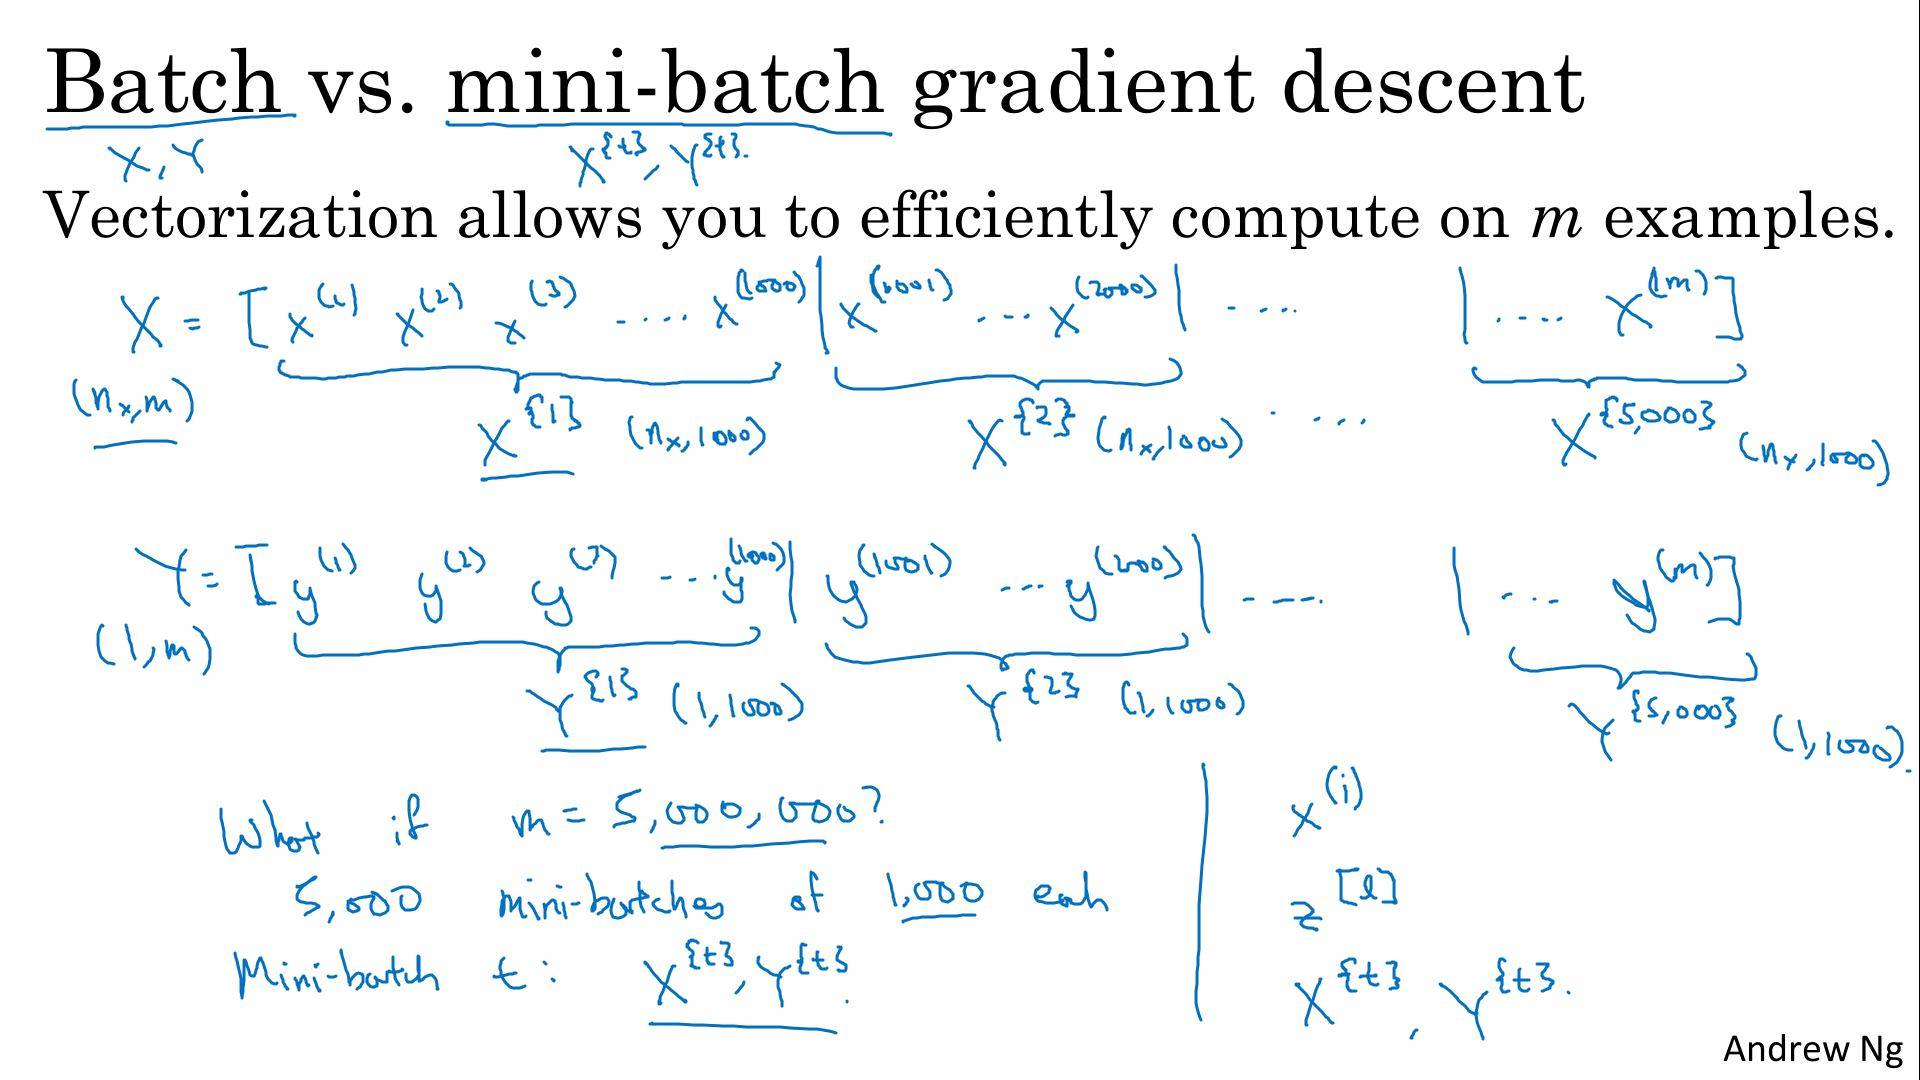 Batch vs. mini-batch gradient descent
X, Y X^{t}, Y^{t}.
Vectorization allows you to efficiently compute on m examples.
X = [ x^(1) x^(2) x^(3) .... x^(1000) | x^(1001) ... x^(2000) | .... | .... x^(m) ]
(n_x, m) X^{1} (n_x, 1000) X^{2} (n_x, 1000) . .... X^{5,000} (n_x, 1000)
Y = [ y^(1) y^(2) y^(3) ... y^(1000) | y^(1001) ... y^(2000) | ---- | ... y^(m) ]
(1, m) Y^{1} (1, 1000) Y^{2} (1, 1000) Y^{5,000} (1, 1000).
What if m = 5,000,000?
5,000 mini-batches of 1,000 each
Mini-batch t: X^{t}, Y^{t}.
x^(i)
z^[l]
X^{t}, Y^{t}.
Andrew Ng